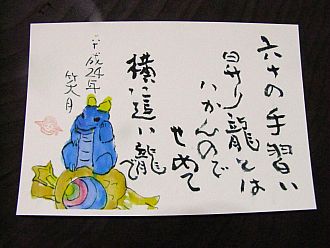 六十の手習い
昇り龍とは
いかんので
せめて
横に這い龍で
平成24年
笑月